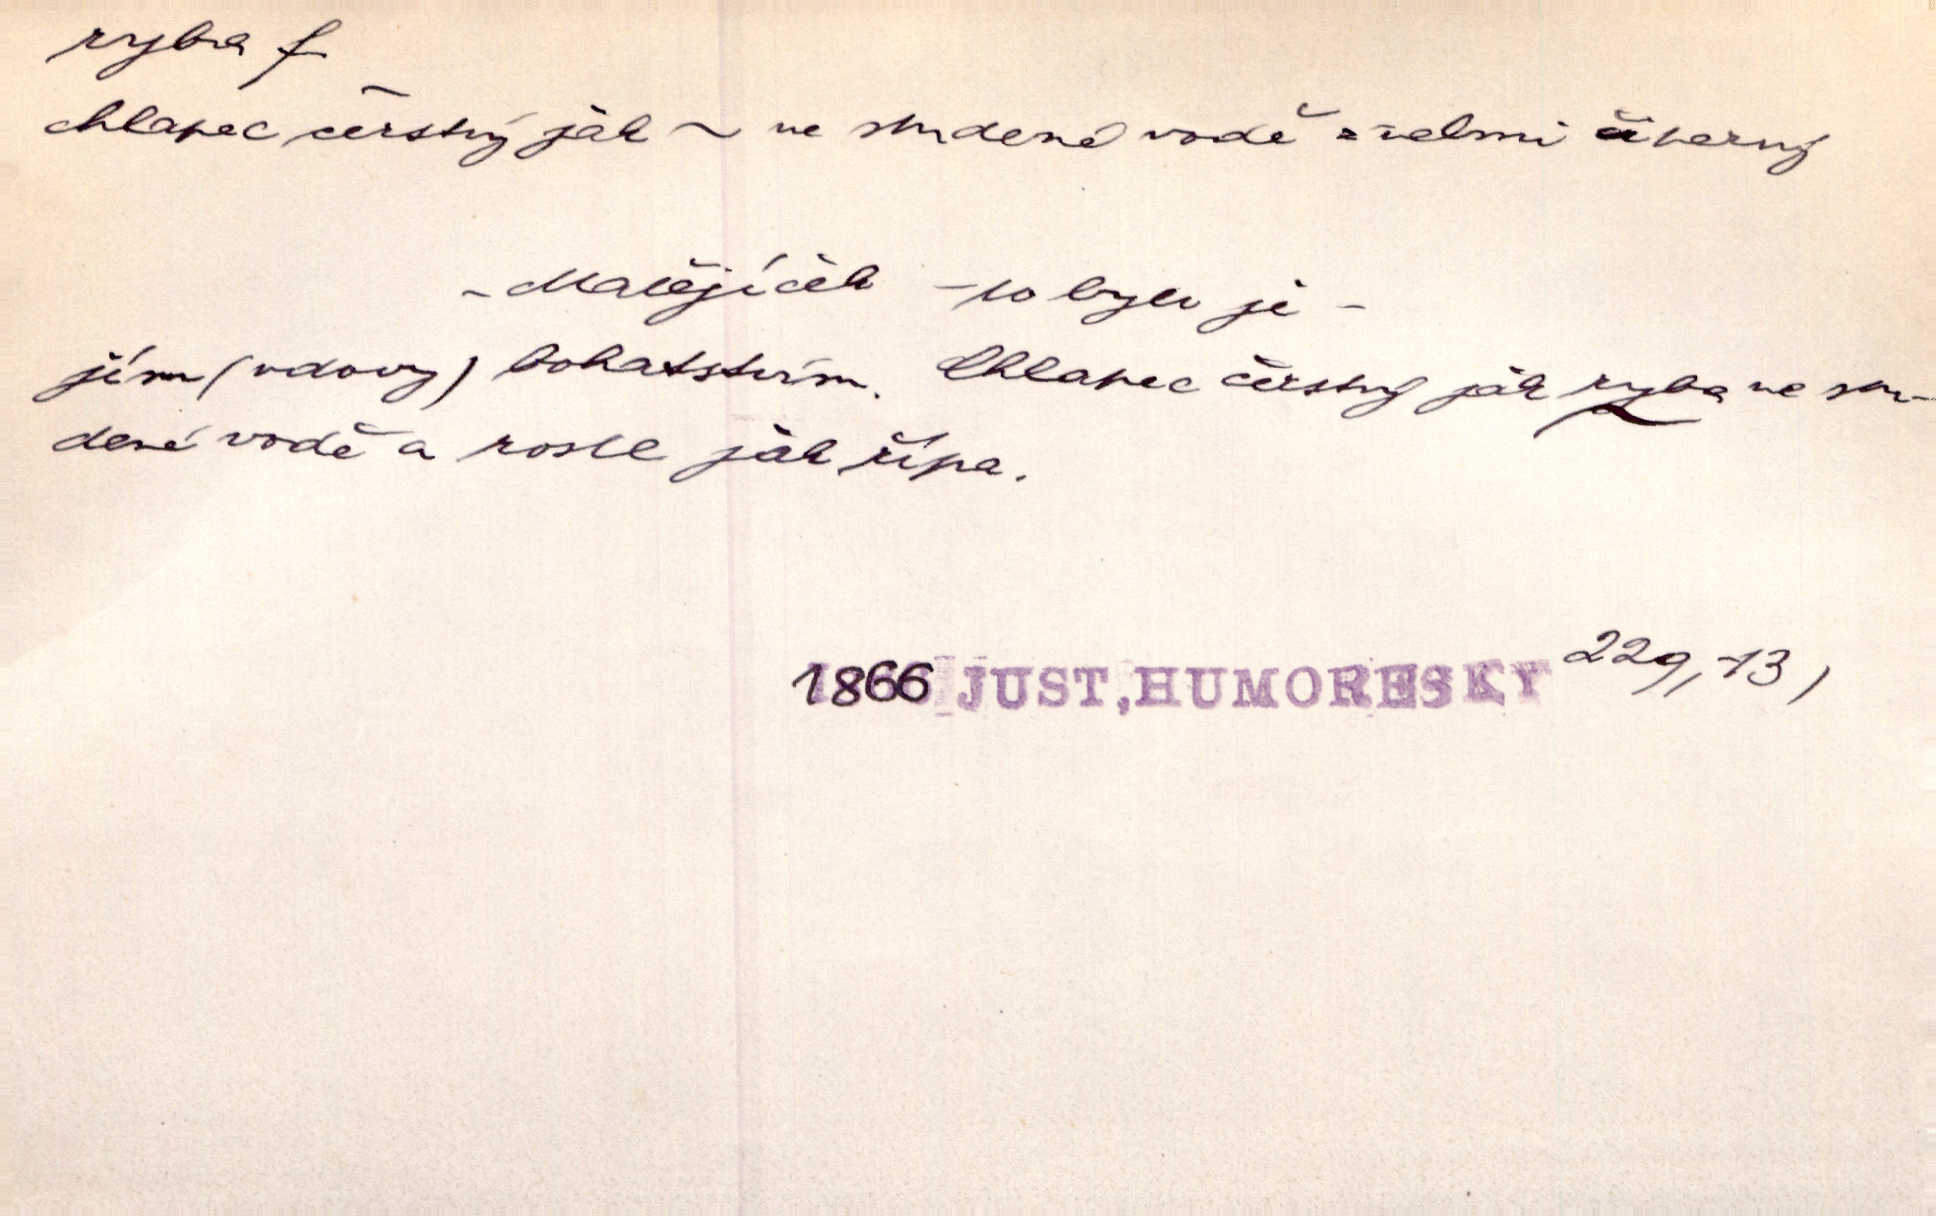 ryba f
chlapec čerstvý jak ~ ve studené vodě = velmi čiperný
- Matějíček - to bylo je-
jím (vdovy) bohatstvím. Chlapec čerstvý jak ryba ve stu-
dené vodě a rostl jak řípa.
1866 JUST, HUMORESKY 229, 13,